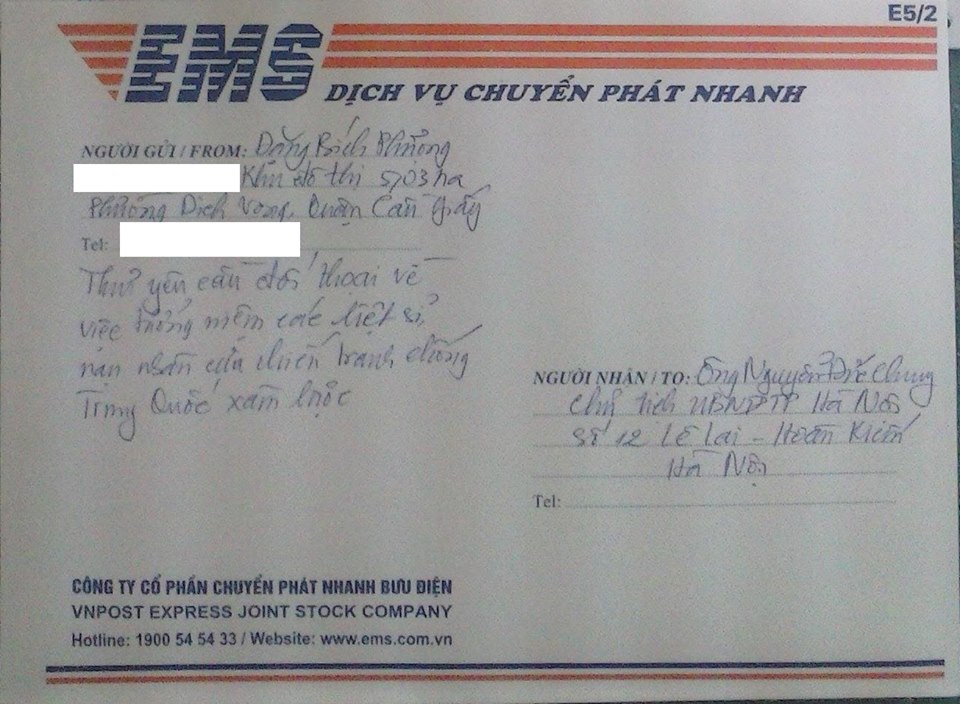 E5/2
EMS
DỊCH VỤ CHUYỂN PHÁT NHANH
NGƯỜI GỬI / FROM: Đặng Bích Phượng
Khu đô thị 5,03 ha
Phường Dịch Vọng, Quận Cầu Giấy
Tel:
Thư yêu cầu đối thoại về
việc tưởng niệm các liệt sĩ,
nạn nhân của chiến tranh chống
Trung Quốc xâm lược
NGƯỜI NHẬN / TO: Ông Nguyễn Đức Chung
Chủ tịch UBND TP Hà Nội
Số 12 Lê Lai - Hoàn Kiếm
Hà Nội
Tel:
CÔNG TY CỔ PHẦN CHUYỂN PHÁT NHANH BƯU ĐIỆN
VNPOST EXPRESS JOINT STOCK COMPANY
Hotline: 1900 54 54 33 / Website: www.ems.com.vn